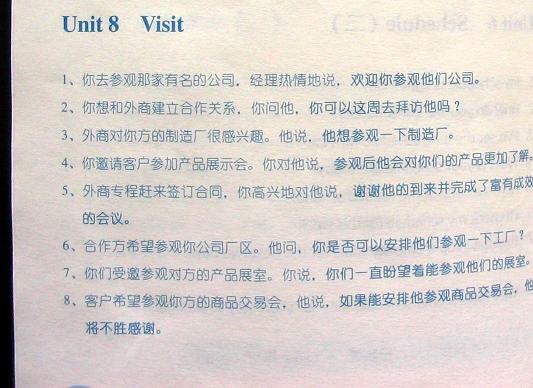 Unit 8 Visit
1、你去参观那家有名的公司，经理热情地说，欢迎你参观他们公司。
2、你想和外商建立合作关系，你问他，你可以这周去拜访他吗？
3、外商对你方的制造厂很感兴趣。他说，他想参观一下制造厂。
4、你邀请客户参加产品展示会。你对他说，参观后他会对你们的产品更加了解。
5、外商专程赶来签订合同，你高兴地对他说，谢谢他的到来并完成了富有成效
的会议。
6、合作方希望参观你公司厂区。他问，你是否可以安排他们参观一下工厂？
7、你们受邀参观对方的产品展室。你说，你们一直盼望着能参观他们的展室。
8、客户希望参观你方的商品交易会，他说，如果能安排他参观商品交易会，他
将不胜感谢。